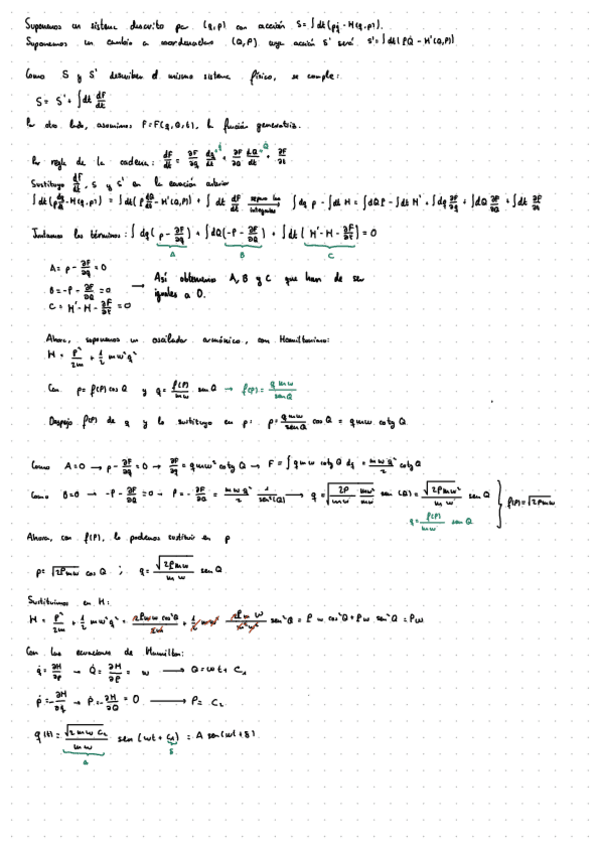 Suponemos un sistema descrito por (q,p) con acción S = ∫dt(pq̇ - H(q,p)).
Suponemos un cambio a coordenadas (Q,P) cuya acción S' será S' = ∫dt(PQ̇ - H'(Q,P))
Como S y S' describen el mismo sistema físico, se cumple:
S = S' + ∫dt dF/dt
Por otro lado, asumimos F = F(q,Q,t), la función generatriz.
Por regla de la cadena: dF/dt = ∂F/∂q dq/dt + ∂F/∂Q dQ/dt + ∂F/∂t
Sustituyo dF/dt, S y S' en la ecuación anterior
∫dt(p dq/dt - H(q,p)) = ∫dt(P dQ/dt - H'(Q,P)) + ∫dt dF/dt separo las integrales ∫dq p - ∫dt H = ∫dQ P - ∫dt H' + ∫dq ∂F/∂q + ∫dQ ∂F/∂Q + ∫dt ∂F/∂t
Juntamos los términos: ∫dq(p - ∂F/∂q) + ∫dQ(-P - ∂F/∂Q) + ∫dt(H' - H - ∂F/∂t) = 0
A B C
A = p - ∂F/∂q = 0
B = -P - ∂F/∂Q = 0
C = H' - H - ∂F/∂t = 0
→ Así obtenemos A, B y C que han de ser
iguales a 0.
Ahora, suponemos un oscilador armónico, con Hamiltoniano:
H = p²/2m + 1/2 mw²q²
Con p = f(P) cos Q y q = f(P)/mw sen Q → f(P) = qmw/senQ
Despejo f(P) de q y lo sustituyo en p: p = qmw/senQ cos Q = qmw cotg Q
Como A=0 → p - ∂F/∂q = 0 → ∂F/∂q = qmw cotg Q → F = ∫qmw cotg Q dq = mwq²/2 cotg Q
Como B=0 → -P - ∂F/∂Q = 0 → P = -∂F/∂Q = mwq²/2 1/sen²(Q) → q = √(2P/mw mw/mw) sen(Q) = √(2Pmw)/mw sen Q
q = f(P)/mw sen Q
f(P) = √2Pmw
Ahora, con f(P), lo podemos sustituir en p
p = √2Pmw cos Q ; q = √2Pmw/mw sen Q
Sustituimos en H:
H = p²/2m + 1/2 mw²q² = 2Pmw cos²Q/2m + 1/2 mw² 2Pmw/m²w² sen²Q = Pw cos²Q + Pw sen²Q = Pw
Con las ecuaciones de Hamilton:
q̇ = ∂H/∂p → Q̇ = ∂H/∂P = w → Q = wt + C₁
ṗ = -∂H/∂q → Ṗ = -∂H/∂Q = 0 → P = C₂
q(t) = √(2mwC₂)/mw sen(wt + C₁) = A sen(wt + δ).
A δ